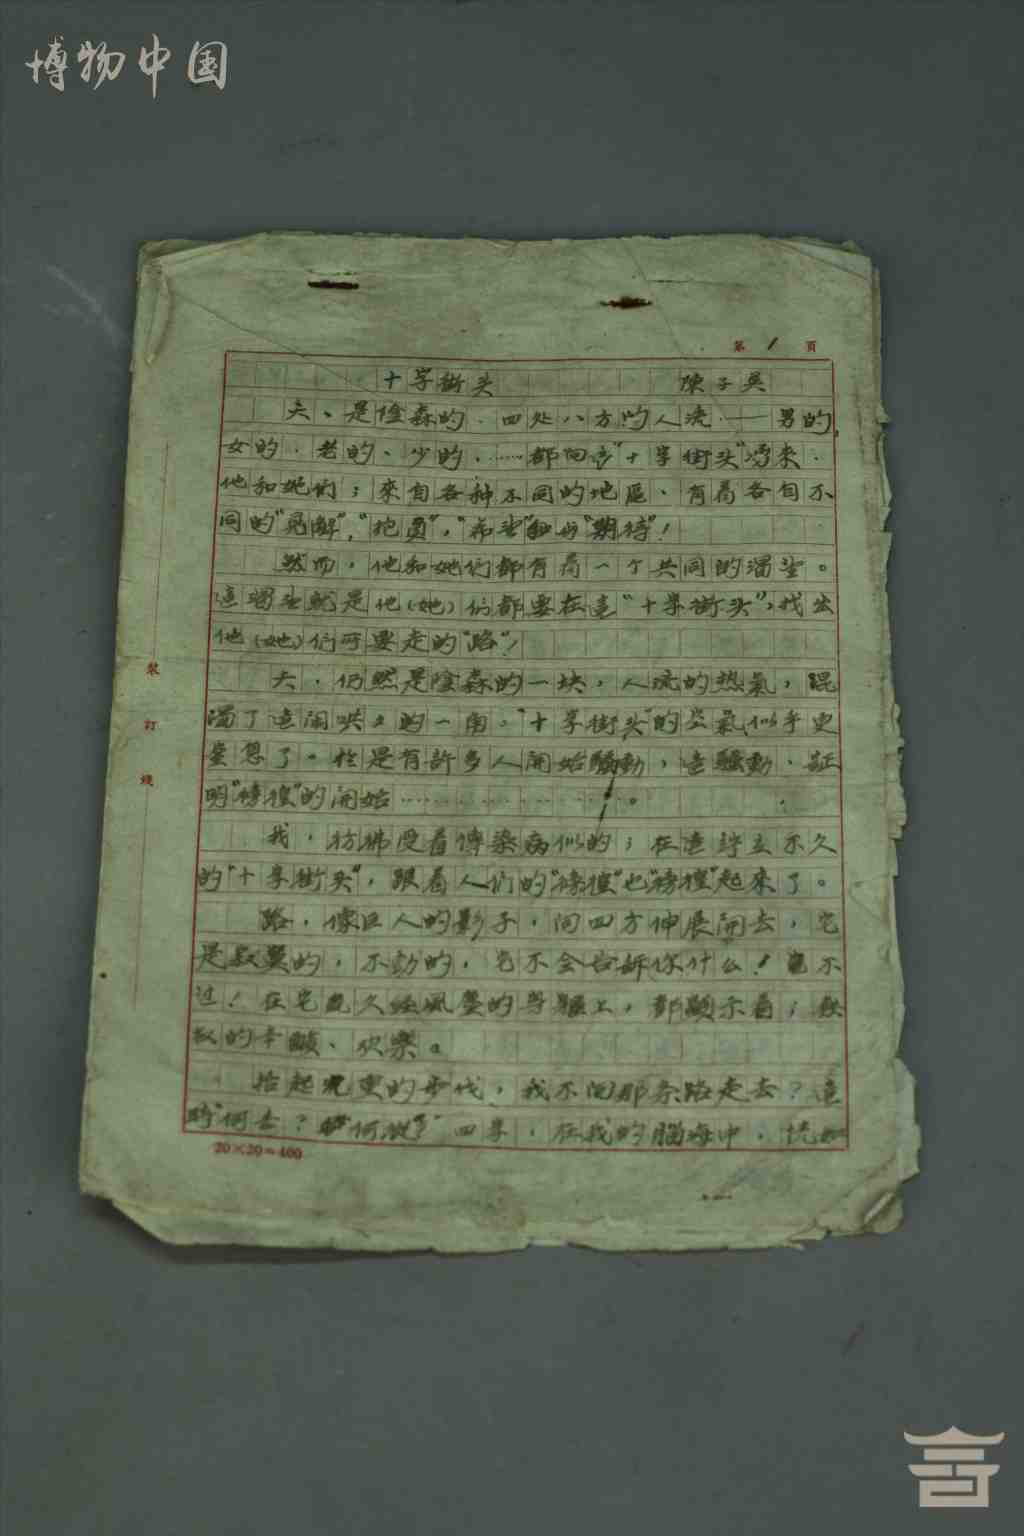 博物中国
第 1 页
十字街头 陳子吳
天、是陰森的、四处八方的人流、——男的,
女的、老的、少的、……都向这"十字街头"湧来、
他和她们；來自各种不同的地區、有着各自不
同的"見解","抱負","希望"和"期待"！
然而，他和她们都有着一个共同的渴望。
這渴望就是他（她）们都要在這"十字街头"，找出
他（她）们所要走的"路"！
天、仍然是陰森的一块，人流的热氣，混
濁了這闹哄々的一角。"十字街头"的空氣似乎更
窒息了。於是有許多人開始騷動，這騷動、証
明"徬徨"的開始…………………。
我，彷彿受着傳染病似的；在這竚立不久
的"十字街头"，跟着人们的"徬徨"也"徬徨"起來了。
路，像巨人的影子，向四方伸展開去，它
是寂寞的，不動的，它不会告訴你什么！不
过！在它久経風塵的身軀上，都顯示着；
的辛酸、欢樂。
抬起的步伐，我不向那条路走去？這
時"何去？何從？"四字，在我的腦海中，恍如
裝
訂
綫
20×20=400